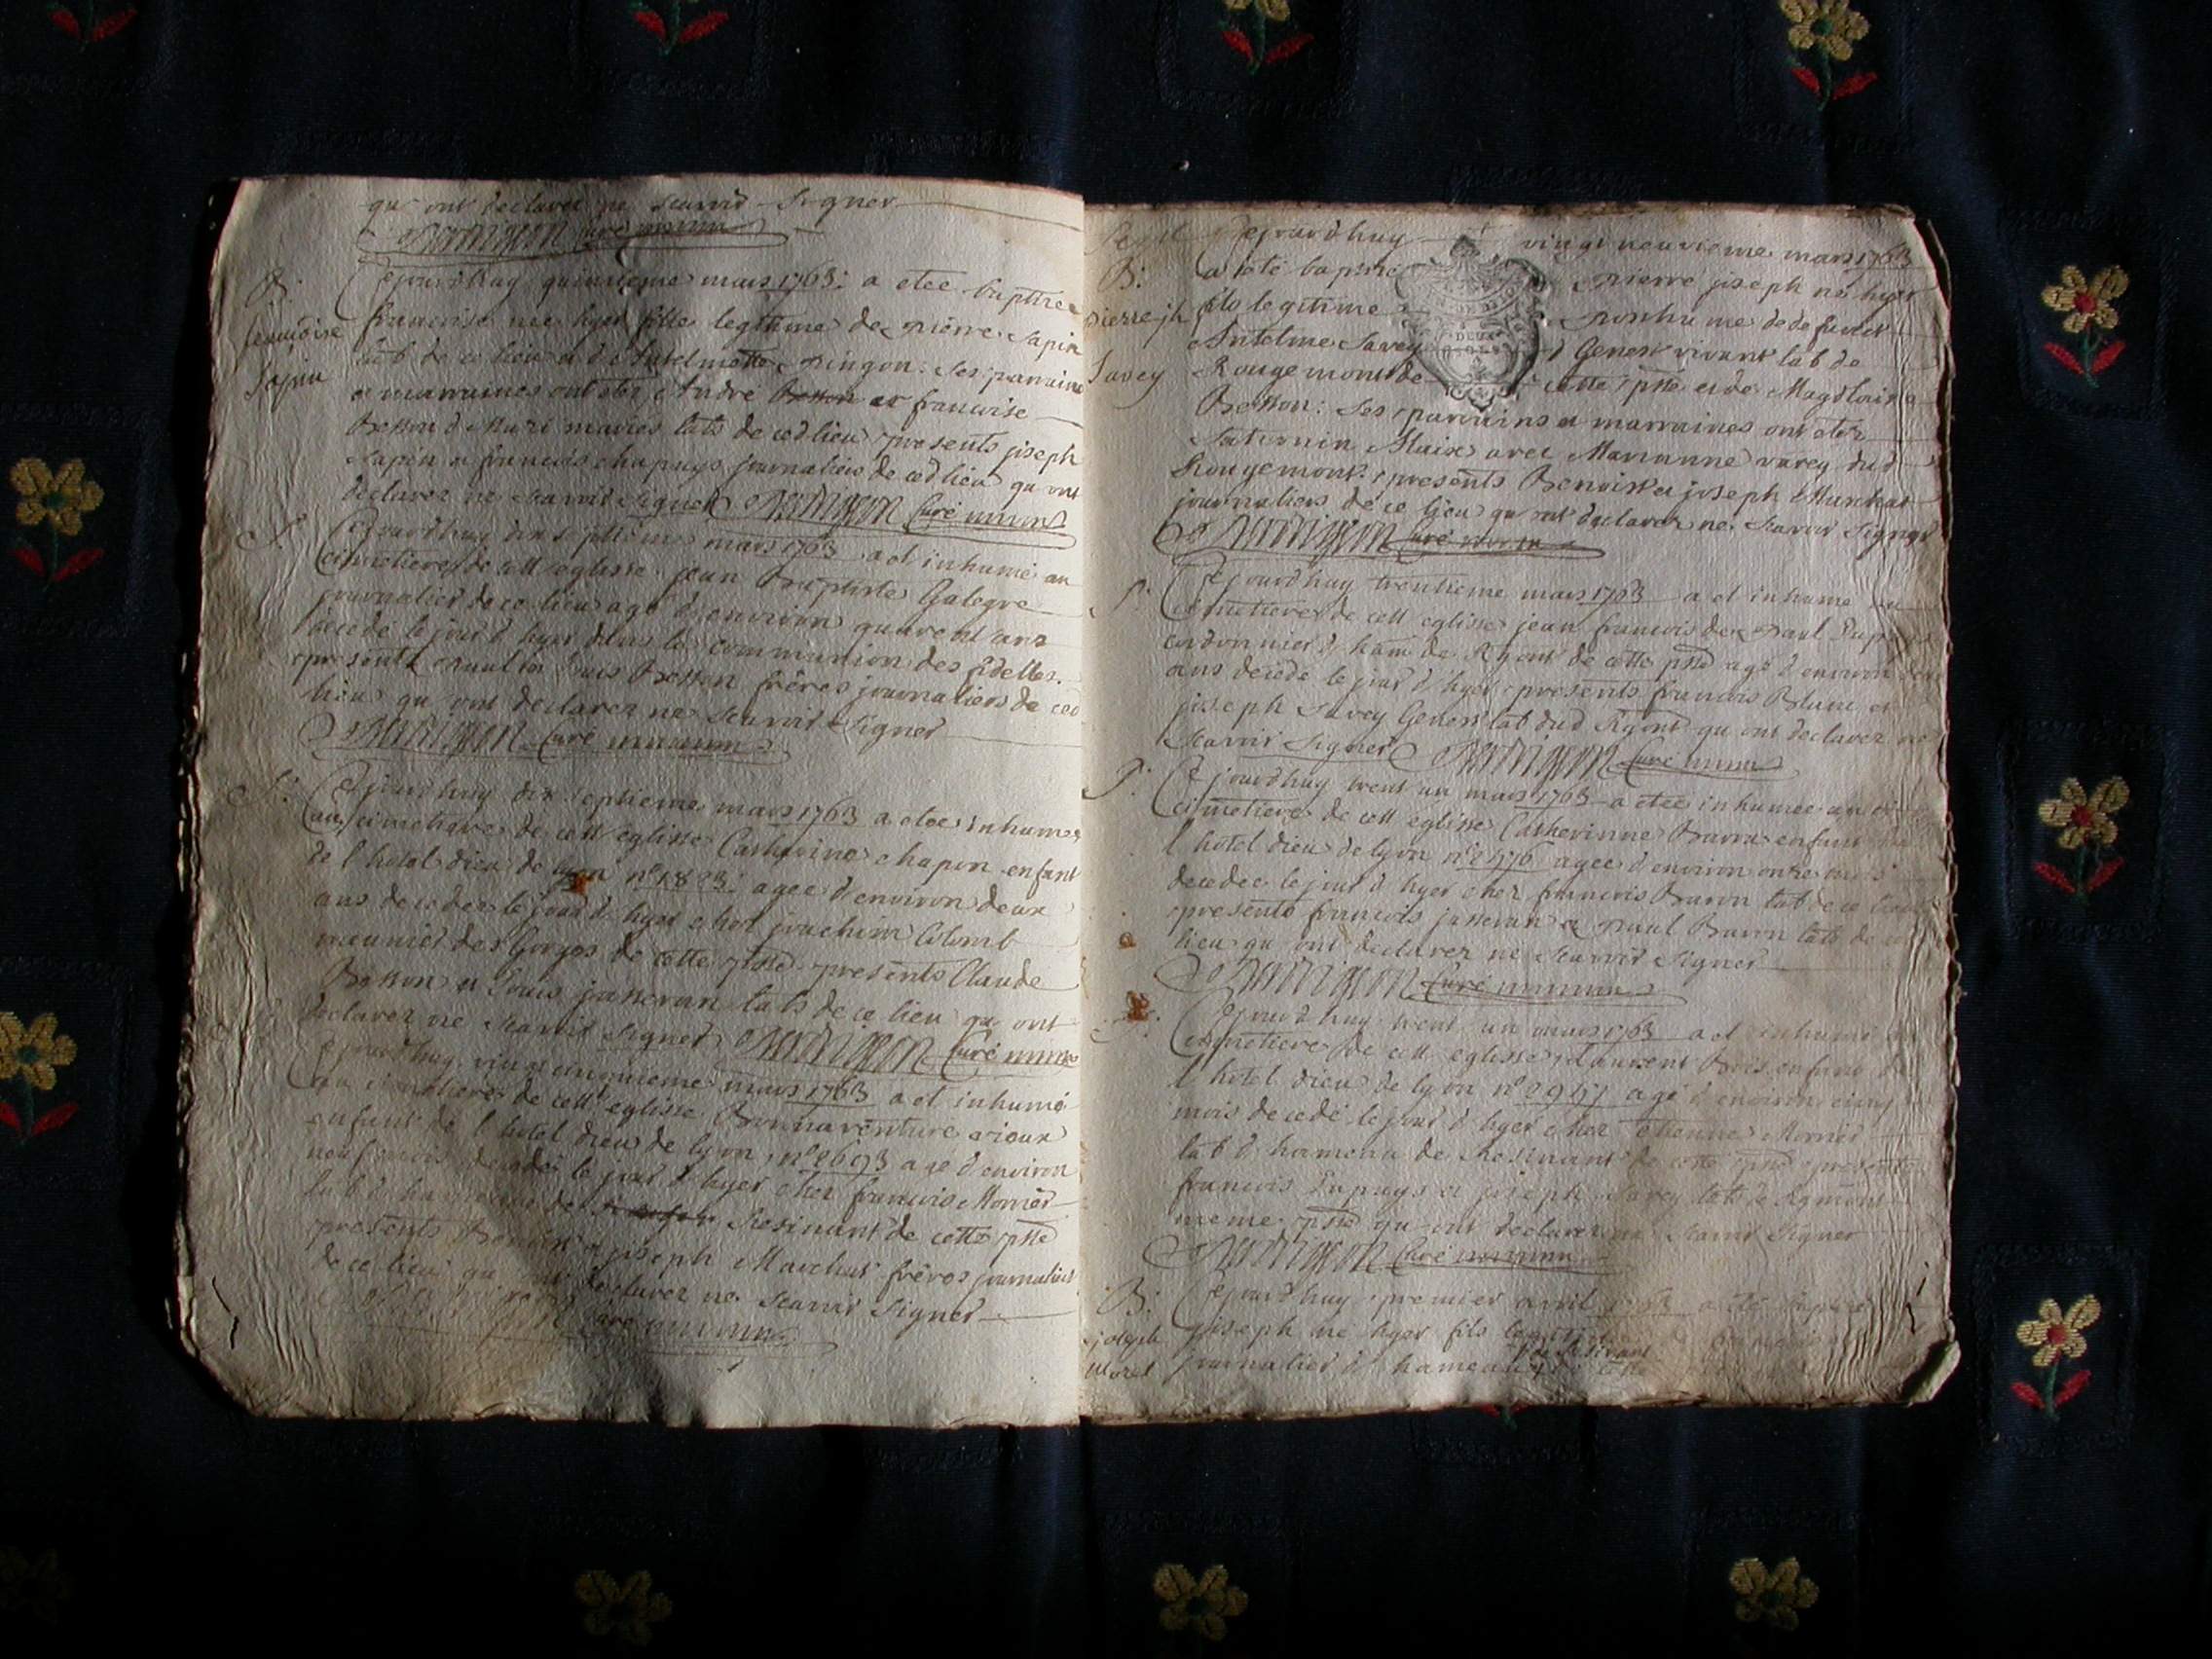 qui ont declarez ne scavoir signer
curé
B:
francoise
Sapin
Cejourdhuy quinzieme mars 1763: a etee baptisee
francoise nee hyer fille legitime de pierre Sapin
lab de ce lieu a d' Antelmette pingon: ses parrains
et marraines ont etez André Besson et francoise
Besson d mariés labs de ced lieu presents joseph
Sapin et francois chapuys journaliers de ced lieu qui ont
declarez ne scavoir signer curé
S:
Cejourdhuy mars 1763 a et inhumé au
cimetiere de cett eglisse jean Baptiste Galegre
journalier de ce lieu agé d'environ quarent ans
decedé le jour d hyer dans la communion des fidelles.
presents paul et Louis Besson frères journaliers de ced
lieu qui ont declarez ne scavoir signer
curé
S:
Cejourdhuy dix septieme mars 1763 a etee inhumee
au cimetiere de cett eglisse Catherine chapon enfant
de l'hotel dieu de lyon n° 1823: agee d'environ deux
ans decedee le jour d hyer chez joachim Colomb
meunier des Gorges de cette psse presents Claude
Besson et Louis janneran labs de ce lieu qui ont
declarez ne scavoir signer curé
Cejourdhuy vingt cinquieme mars 1763 a et inhumé
au cimetiere de cett eglisse Bonnaventure vioux
enfant de l'hotel dieu de lyon n° 2693 agé d'environ
neuf mois decedé le jour d hyer chez francois Monnier
lab d hameau de Resinant de cette psse
presents Benoist et joseph Marchat frères journaliers
de ce lieu qui ont declarez ne scavoir signer
curé
B:
pierre jh
Savey
Cejourdhuy vingt neuvieme mars 1763
a eté baptisé pierre joseph né hyer
fils legitime posthume de defunct
Antelme Savey d Genest vivant lab de
Rougemont de cette psse et de Magdleine
Besson: ses parrains et marraines ont etez
Saturnin avec Marianne varey dud
Rougemont: presents Benoist et joseph Marchat
journaliers de ce lieu qui ont declarez ne scavoir signer
curé
S:
Cejourdhuy trentieme mars 1763 a et inhumé au
cimetiere de cett eglisse jean francois de Paul
cordonnier d ham de de cette psse agé d environ
ans decedé le jour d hyer presents francois Blanc et
joseph Savey Genest lab dud qui ont declarez ne
scavoir signer curé
S:
Cejourdhuy trent un mars 1763 a etee inhumee au
cimetiere de cett eglisse Catherinne Barra enfant de
l hotel dieu de lyon n° 2476 agee d environ onze mois
decedee le jour d hyer chez francois Baron lab de ce lieu
presents francois janneran et paul Baron labs de ce
lieu qui ont declarez ne scavoir signer
curé
Cejourdhuy trent un mars 1763 a et inhumé
cimetiere de cett eglisse Laurent Bois enfant de
l hotel dieu de lyon n° 2957 agé d environ cinq
mois decedé le jour d hyer chez etienne Monnier
lab d hameau de Resinant de cette psse presents
francois Dupuys et joseph Savey labs de
meme psse qui ont declarez ne scavoir signer
curé
B:
joseph
Morel
Cejourdhuy premier avril 1763 a eté baptisé
joseph né hyer fils legitime
de Resinant
journalier d hameau de cette